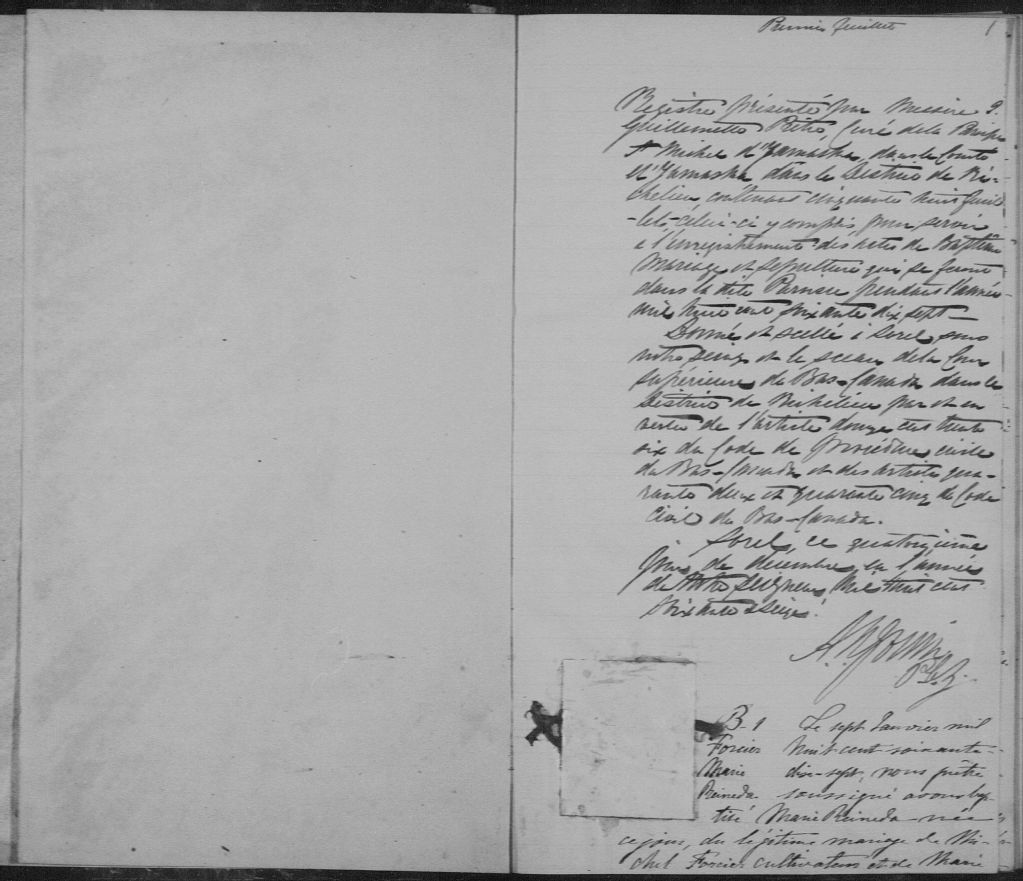 Premier feuillet 1
Registre présenté par Messire J.
Guillemette Ptre, Curé de la Paroisse
St Michel d'Yamaska, dans le Comté
d'Yamaska dans le District de Ri-
chelieu, contenant cinquante huit feuil
-lets, celui-ci y compris, pour servir
à l'enregistrement des actes de Baptême
Mariage et sépulture qui se feront
dans la dite Paroisse pendant l'année
mil huit cent soixante dix sept —
Donné et scellé à Sorel, sous
notre seing et le sceau de la Cour
supérieure du Bas-Canada dans le
District de Richelieu par et en
vertu de l'article douze cent trente
six du Code de Procédure civile
du Bas-Canada et des articles qua-
rante deux et quarante cinq du Code
Civil du Bas-Canada.
Sorel, ce quatorzième
jour de décembre en l'année
de Notre Seigneur, Mil huit cent
soixante & seize.
B-1 Le sept Janvier mil
Forcier huit cent soixante-
Marie dix-sept, nous prêtre
Reineda soussigné avons bap-
tisé Marie Reineda née
ce jour, du légitime mariage de Mi-
chel Forcier cultivateur et de Marie